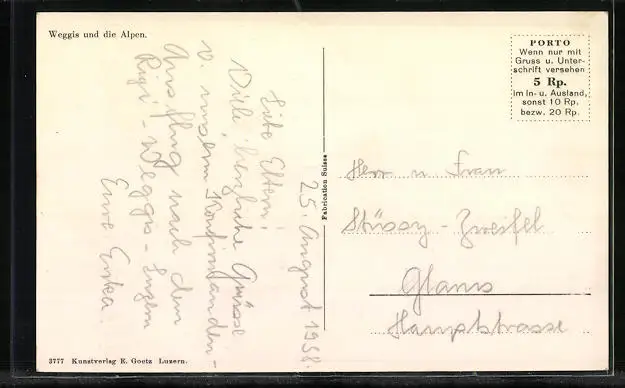 Weggis und die Alpen.
PORTO
Wenn nur mit
Gruss u. Unter-
schrift versehen
5 Rp.
im In- u. Ausland,
sonst 10 Rp.
bezw. 20 Rp.
25. August 1938.
Liebe Eltern!
Viele, herzliche Grüsse
v. unserm Konfirmanden-
Ausflug nach dem
Rigi - Weggis - Luzern
Eure Erika.
Fabrication Suisse
Herr u Frau
Stüssy - Zweifel
Glarus
Hauptstrasse
3777 Kunstverlag E. Goetz Luzern.